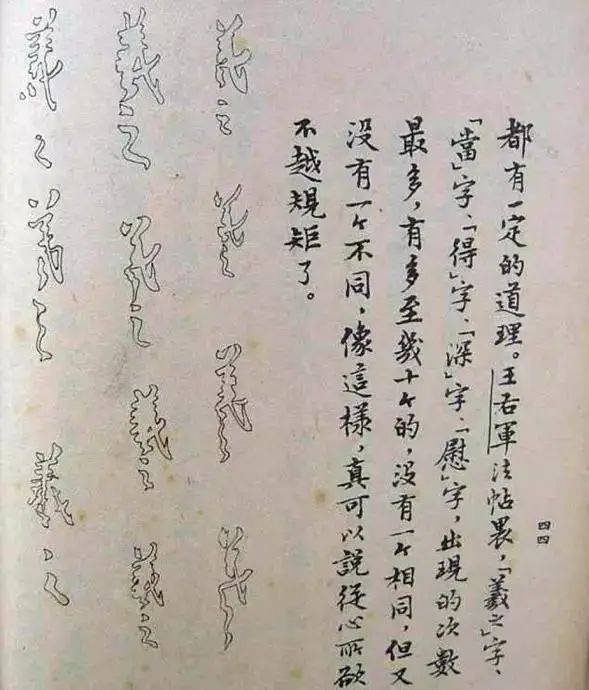 四四
都有一定的道理。王右軍法帖裏，「羲之」字、
「當」字、「得」字、「深」字、「慰」字，出現的次數
最多，有多至幾十个的，没有一个相同，但又
没有一个不同，像這樣，真可以說從心所欲
不越規矩了。
羲之
羲之
羲之
羲之
羲之
羲之
羲之
羲之
羲之
羲之
羲之